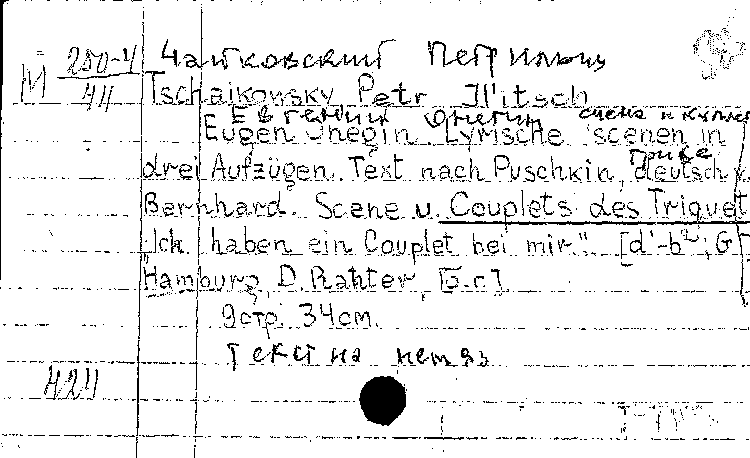 М 250-4/411
Чайковский Петр Ильич
Tschaikowsky Petr Il'itsch
Евгений Онегин сцена и куплеты
Eugen Onegin. Lyrische Scenen in
Трике
drei Aufzügen. Text nach Puschkin, deutsch v.
Bernhard. Scene u. Couplets des Triquet
"Ich haben ein Couplet bei mir." [d'-b²; G]
Hamburg, D. Rahter, [s.a.]
9 стр. 34 cm.
текст на нем яз
424